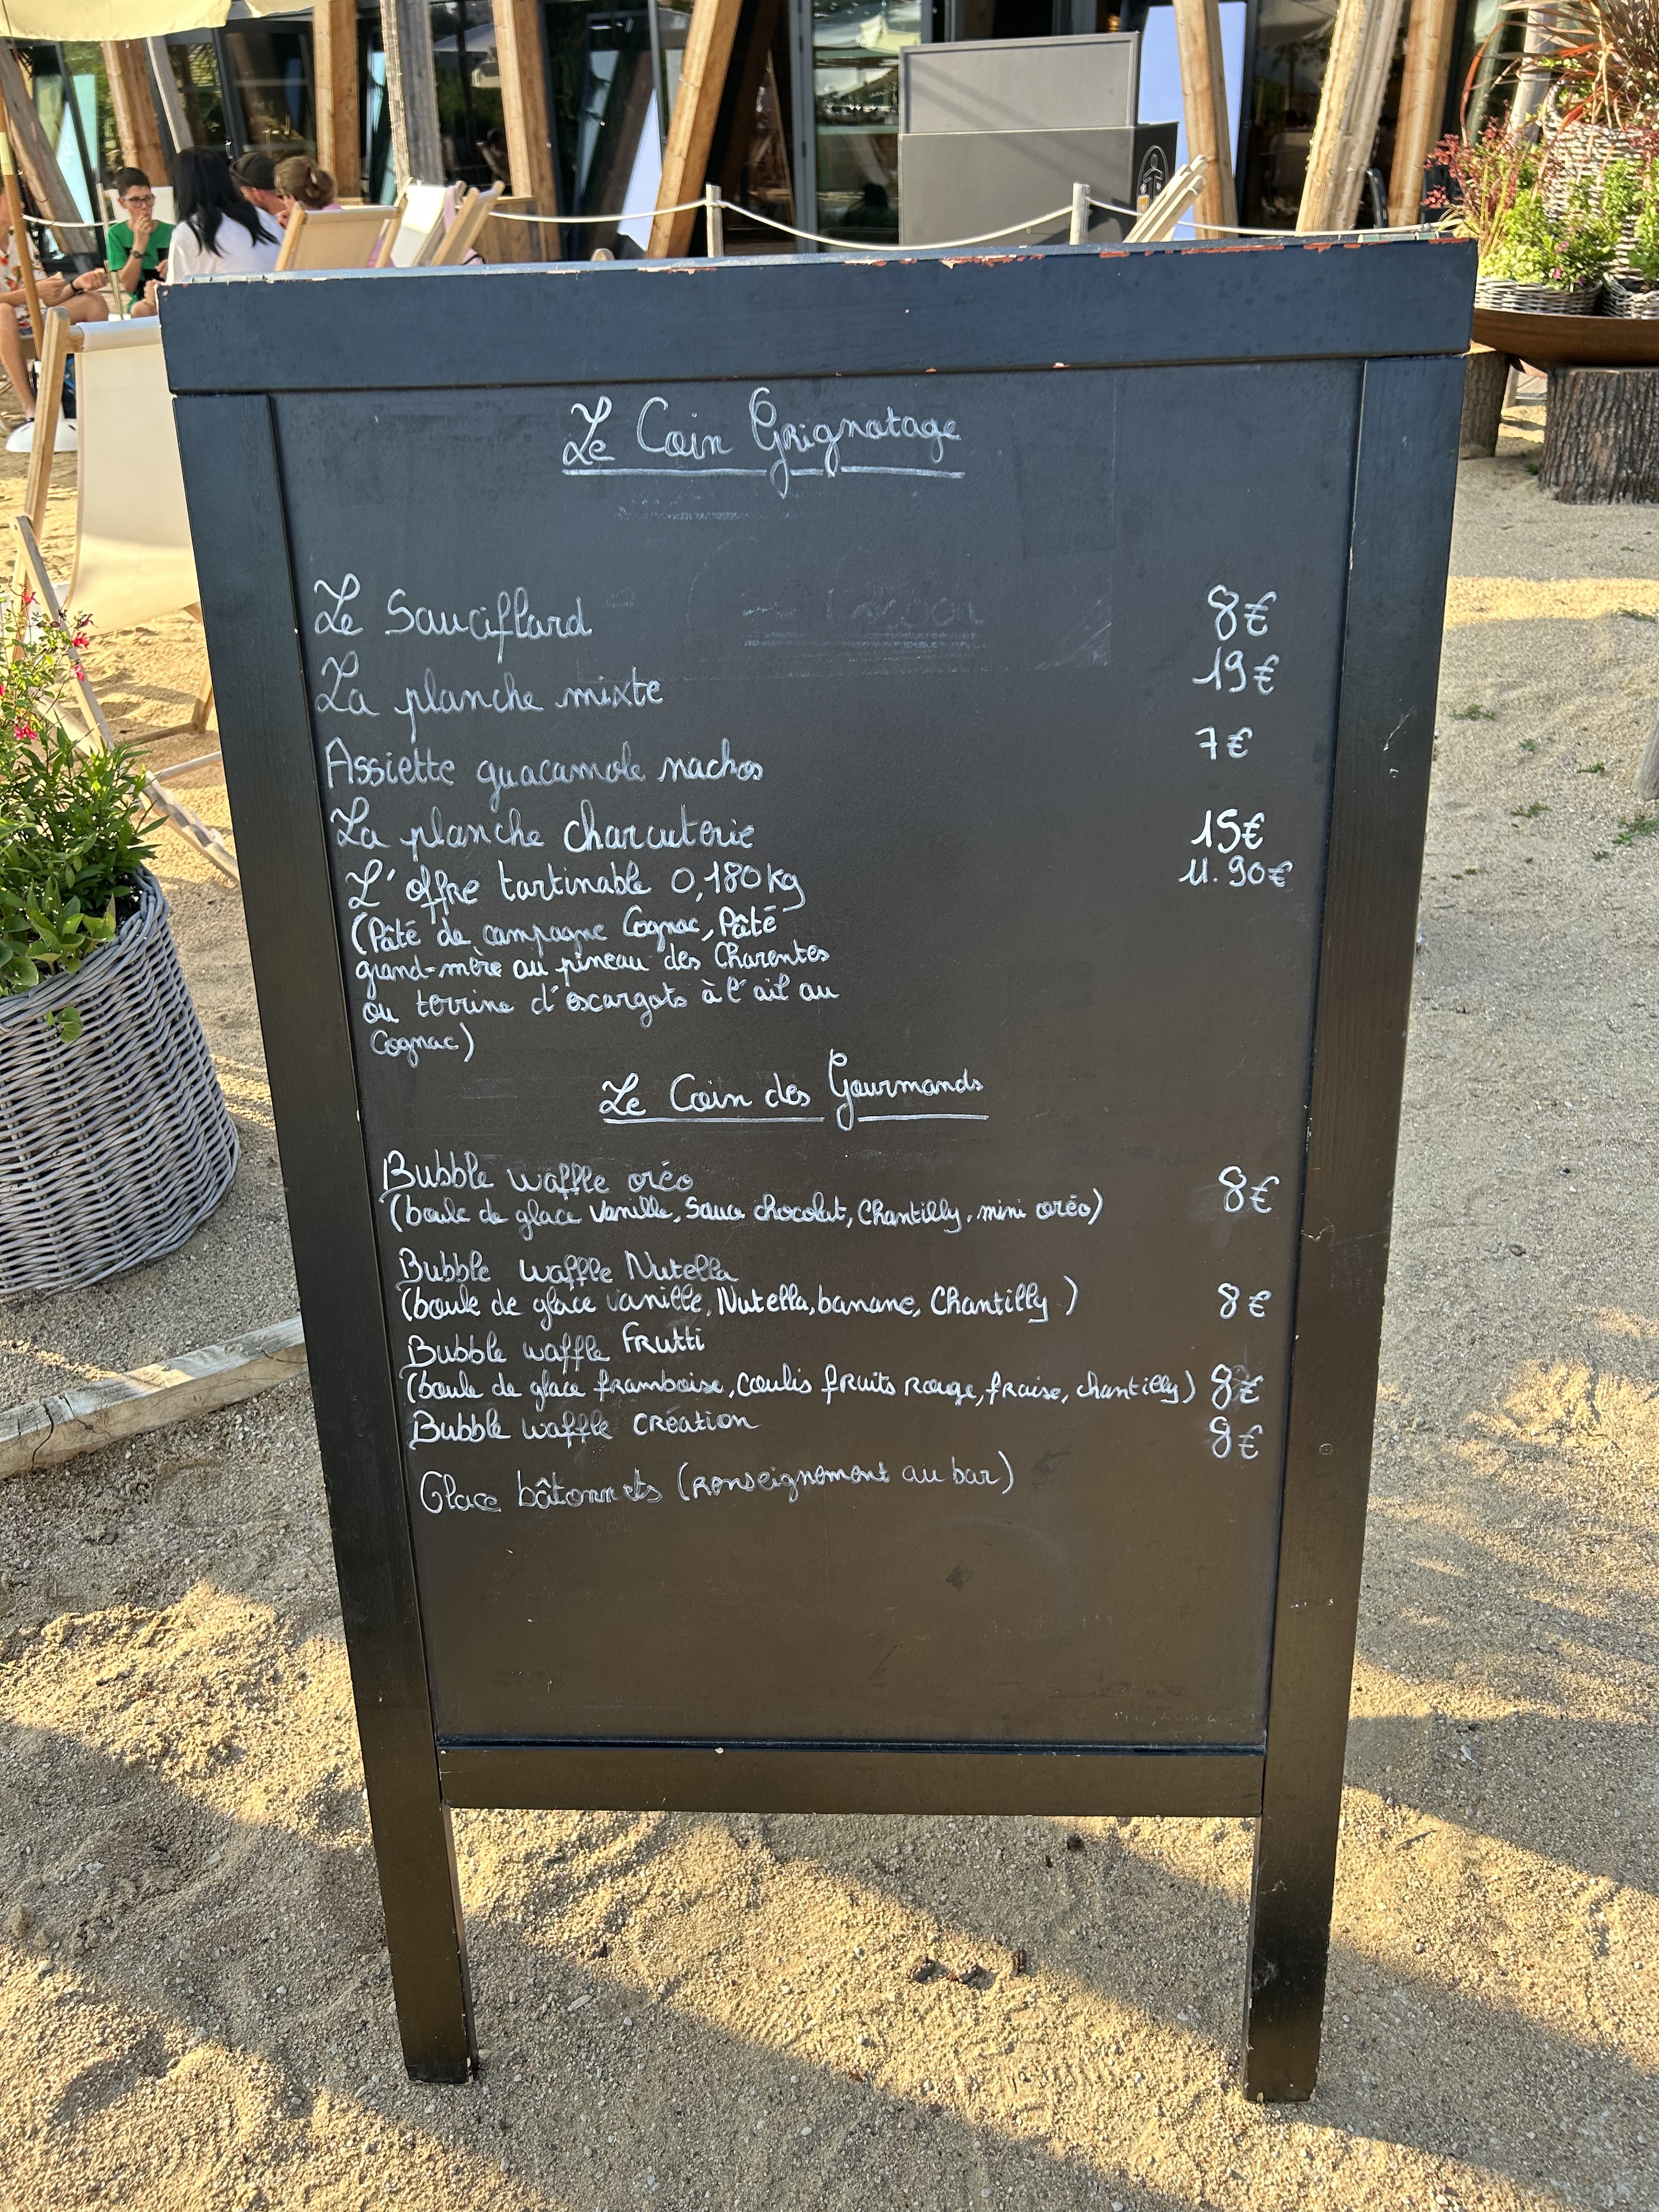 Le Coin Grignotage
Le Sauciflard 8€
La planche mixte 19€
Assiette guacamole nachos 7€
La planche charcuterie 15€
L'offre tartinable 0,180kg 11.90€
(Pâté de campagne Cognac, Pâté
grand-mère au pineau des Charentes
ou terrine d'escargots à l'ail au
Cognac)
Le Coin des Gourmands
Bubble waffle oréo 8€
(boule de glace vanille, sauce chocolat, Chantilly, mini oréo)
Bubble waffle Nutella
(boule de glace vanille, Nutella, banane, Chantilly) 8€
Bubble waffle Frutti
(boule de glace framboise, coulis fruits rouge, fraise, chantilly) 8€
Bubble waffle création 8€
Glace bâtonnets (renseignement au bar)